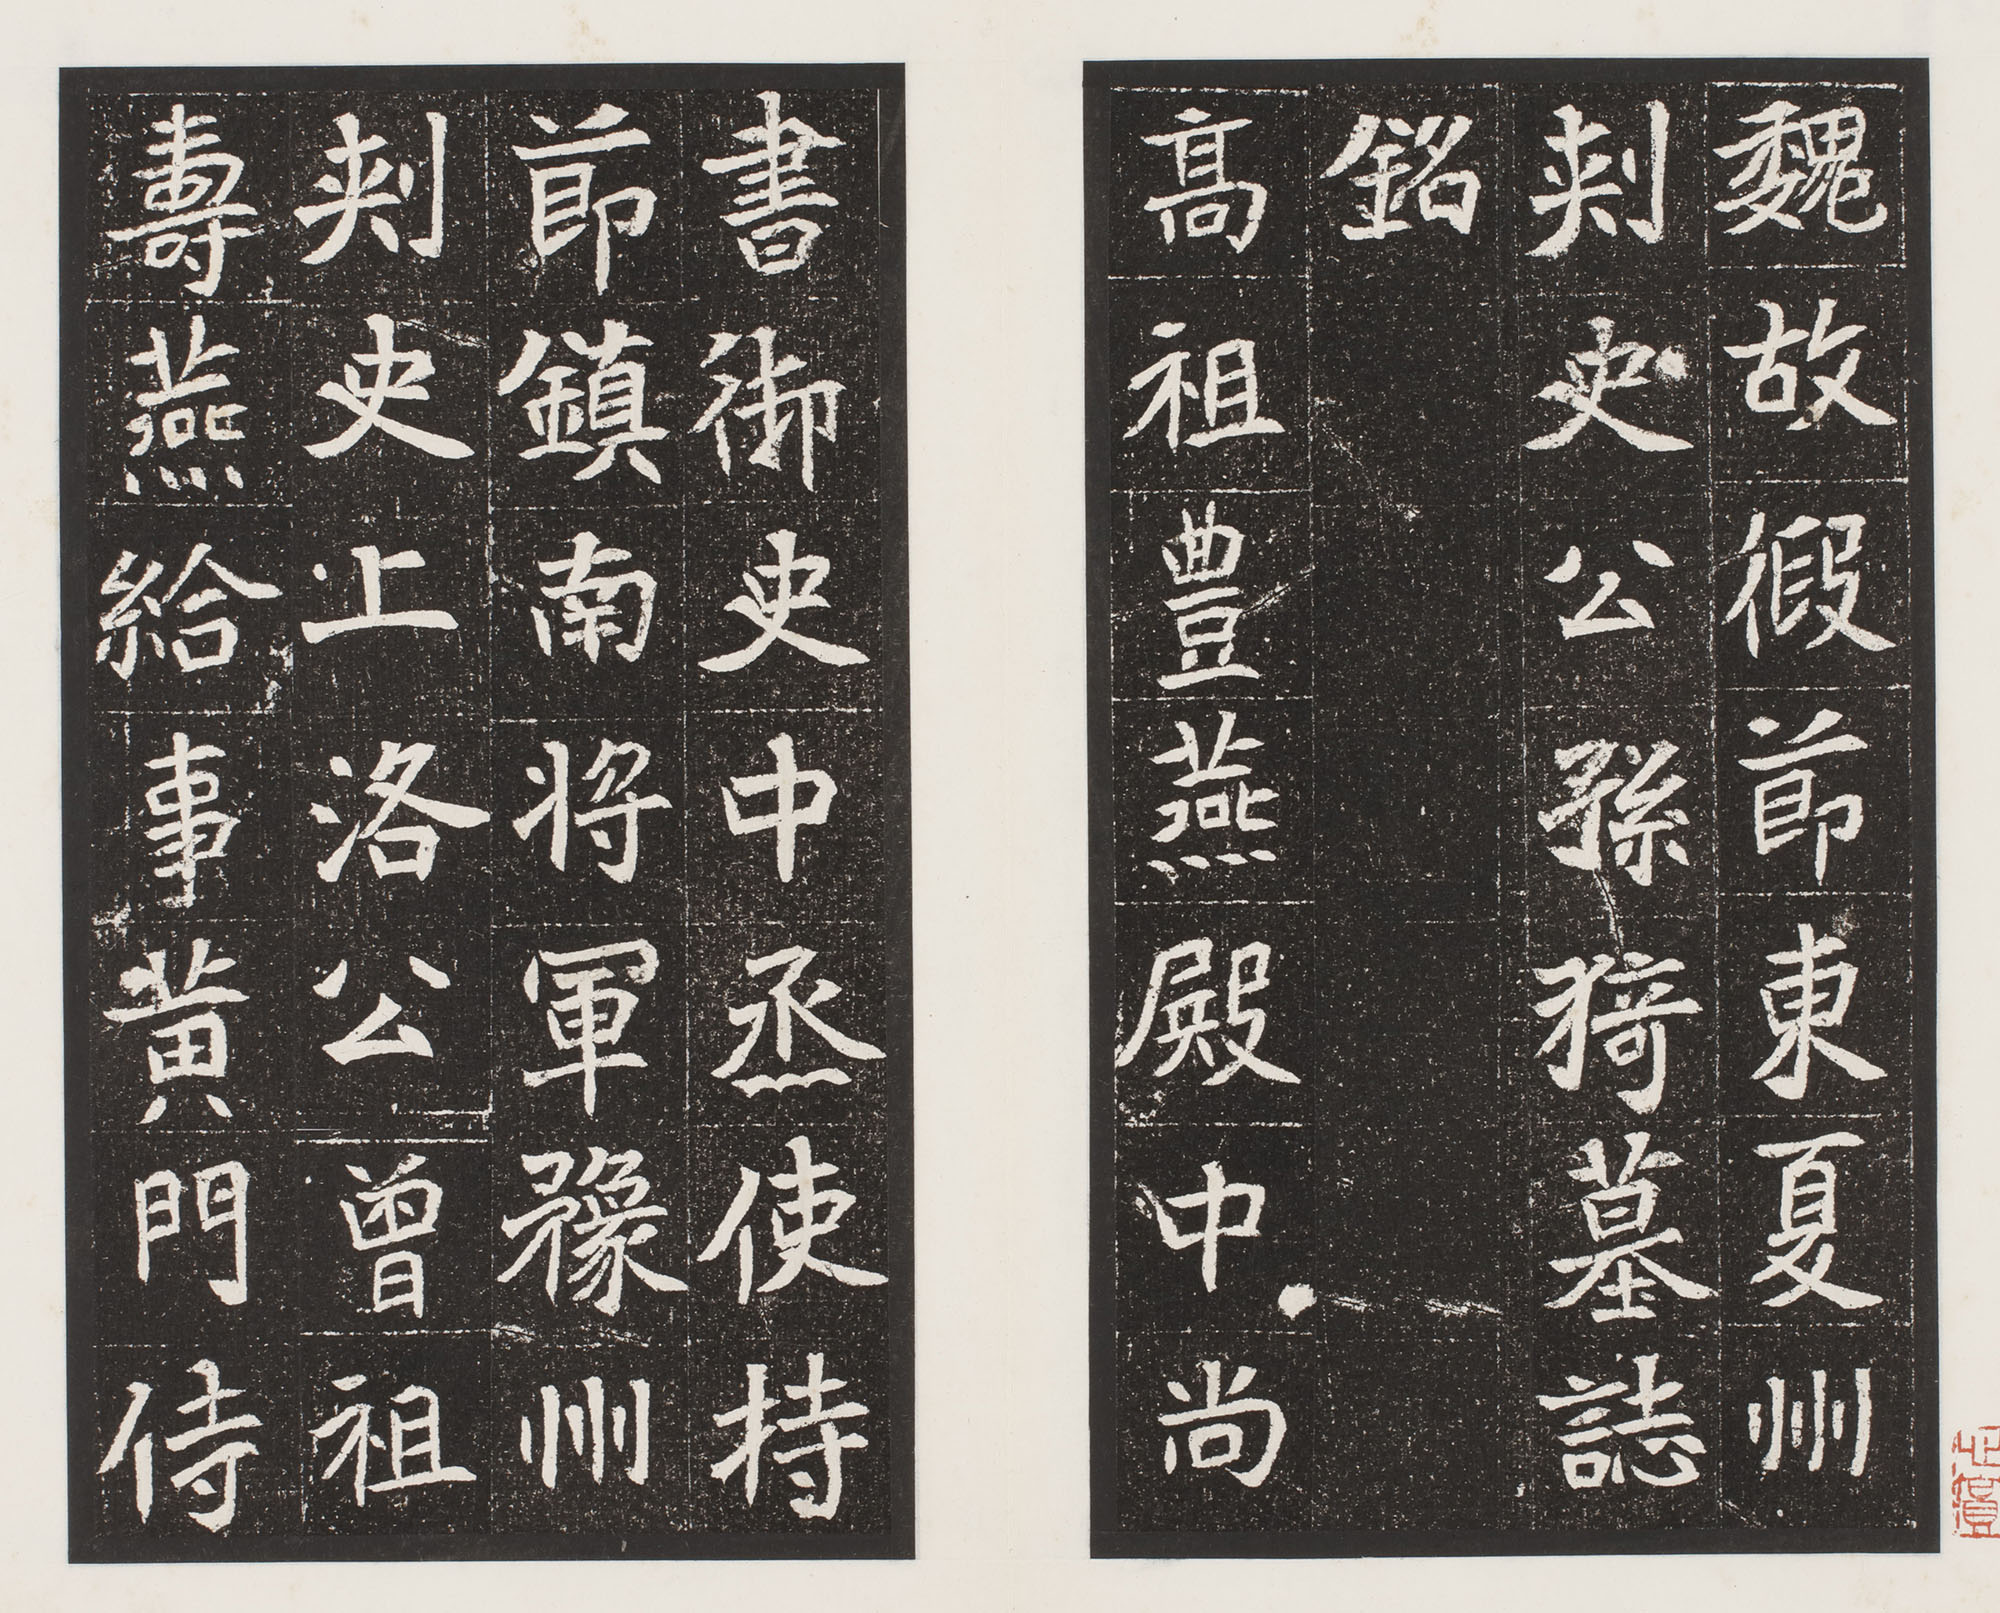 魏故假節東夏州
刾史公孫猗墓誌
銘
高祖豊燕殿中尚
書御史中丞使持
節鎮南將軍豫州
刾史上洛公曽祖
壽燕給事黃門侍